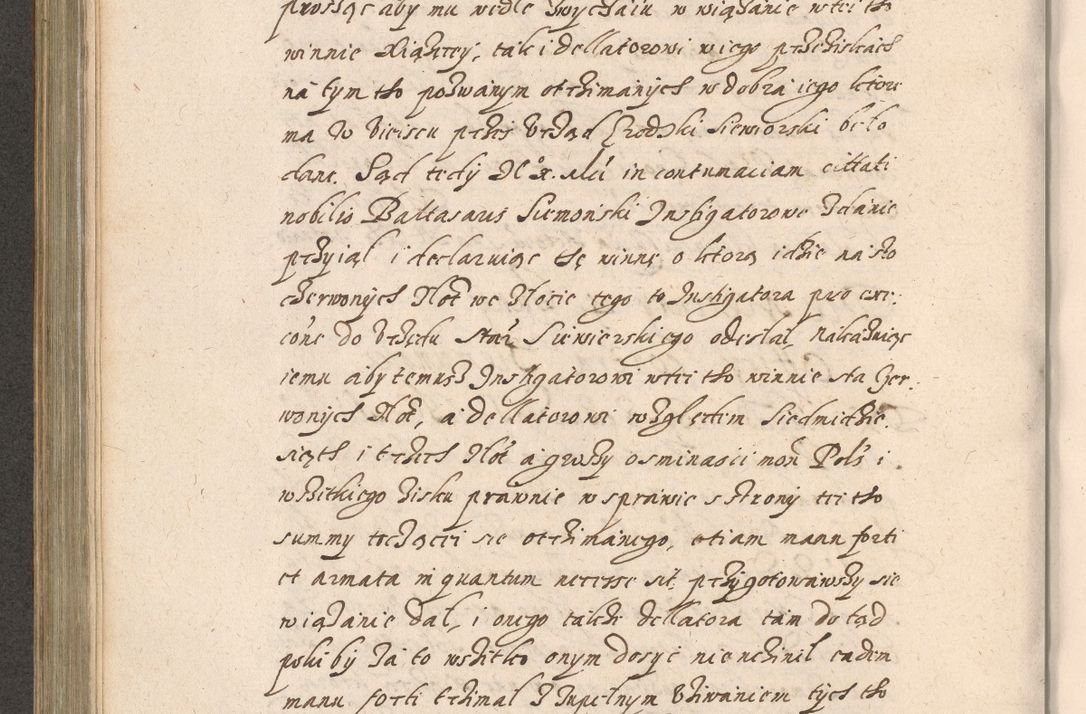 prosząc aby mu wedle zwyczaiu w wiązanie w tei to
winnie Xiązęcy, tak i dellatorowi w iego przeziskach
na tym to pozwanym otrzimanych w dobra iego ktore
ma w Bieiscu przes Urząd Grodzki Siewiorski beło
dane. Sąd tedy JE X. Mci in contumaciam cittati
nobilis Baltasarus Siemoński Instigatorowe zdanie
przyiął i declaruiąc tę winnę o ktorą idzie na sto
czerwonych złot we złocie tego to Instigatora pro exe:
cone do Urzędu Star Siewierskiego odesłał, nakazuiąc
iemu aby temusz Instigatorowi w tei to winnie sta czer
wonych złot, a dellatorowi względem Siedmidzie,
siąth i trzech złot a groszy osminasci mon Pols i
wszitkiego zisku prawnie w sprawie s strony tei to
summy toczącei sie otrzimanego, etiam manu forti
et armata in quantum necesse sit, przygotowawszy sie
wiązanie dał, i onego także dellatora tam dotąd
poki by za to wszitko onym dosyc nie uczinil eadem
manu forti trzimal z zupełnym używaniem tych to